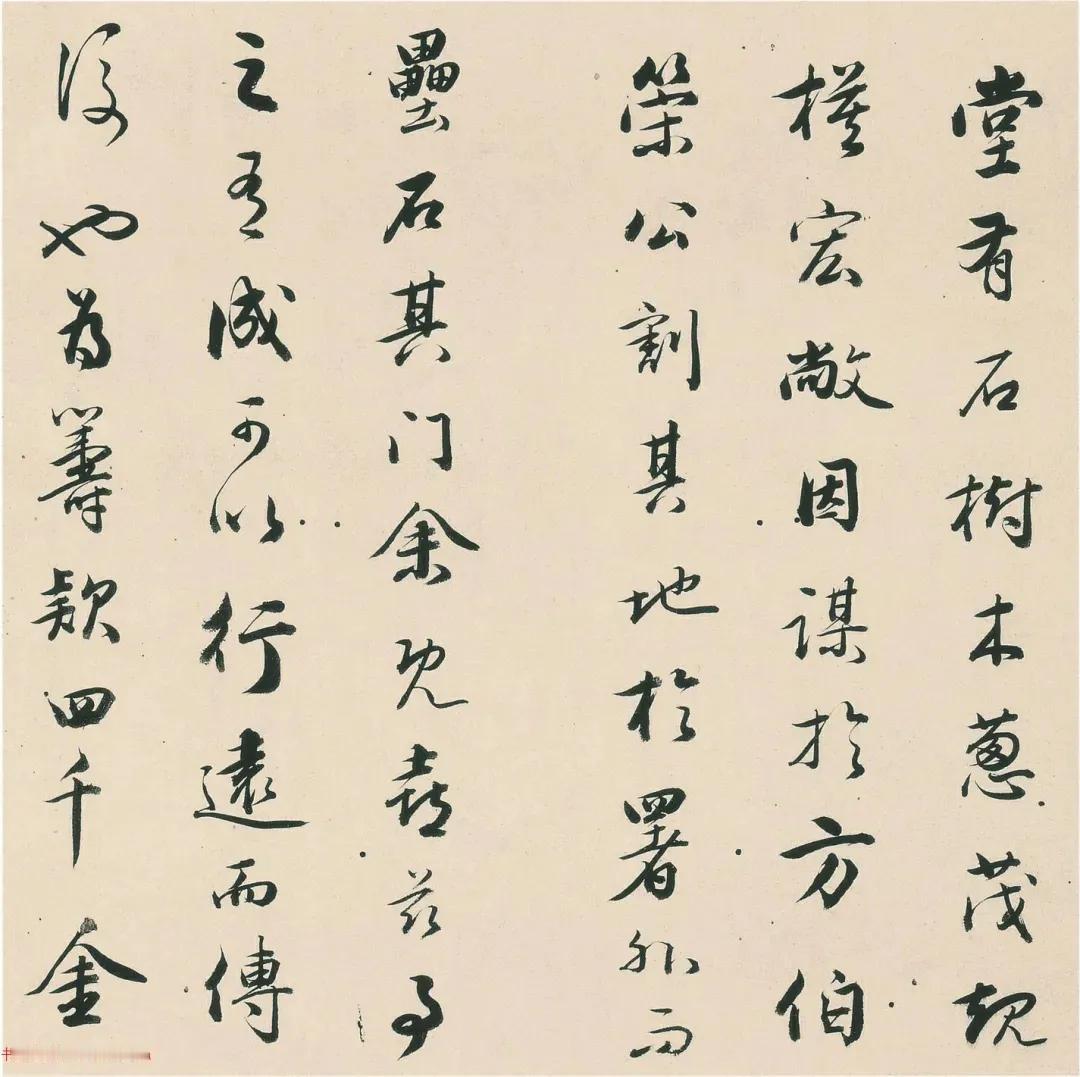 堂有石樹木蔥茂規
模宏敞因謀於方伯
榮公割其地於署外而
壘石其門余既喜茲事
之有成可以行遠而傳
後也為籌款四千金